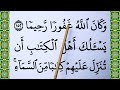 وَكَانَ اللَّهُ غَفُورًا رَّحِيمًا ﴿١٥٢﴾
يَسْـَٔلُكَ أَهْلُ الْكِتَٰبِ أَن
تُنَزِّلَ عَلَيْهِمْ كِتَٰبًا مِّنَ السَّمَآءِ